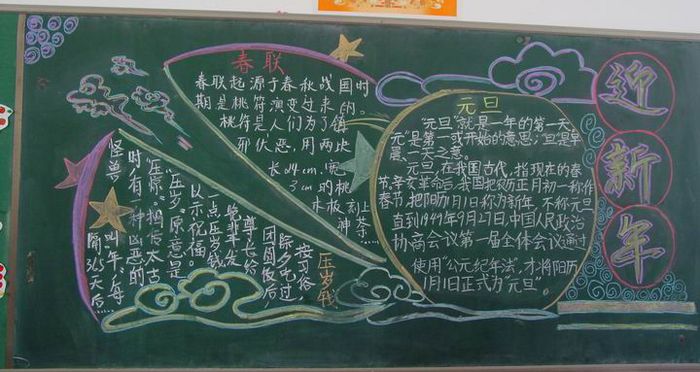 迎新年
春联
春联起源于春秋战国时
期是桃符演变过来的,
桃符是人们为了镇
邪伏恶,用两块
长4cm,宽
3cm的桃
木板刻上
神荼……
元旦
“元旦”就是一年的第一天,
元”是第一或开始的意思;旦是早
晨、一天之意。
元旦,在我国古代,指现在的春
节,辛亥革命后,我国把农历正月初一称作
春节,把阳历1月1日称为新年,不称元旦
直到1949年9月27日,中国人民政治
协商会议第一届全体会议通过
使用“公元纪年法”,才将阳历
1月1日正式为元旦”
压岁钱
按习俗,
除夕吃过
团圆饭后
尊长给
晚辈发
一点压岁钱
以示祝福。
“压岁”原意是
“压惊”相传太古
时,有一种凶恶的
怪兽
叫年,每
隔365天后……